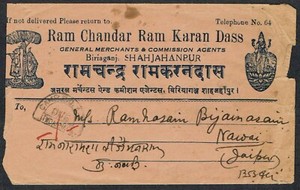 If not delivered Please return to:
Telephone No. 64
Ram Chandar Ram Karan Dass
GENERAL MERCHANTS & COMMISSION AGENTS
Biriaganj, SHAHJAHANPUR
रामचन्द्र रामकरनदास
जनरल मर्चेण्टस ऐण्ड कमीशन एजेण्टस, बिरियागंज शाहजहाँपुर।
To,
M/s Ramhasain Bijainarain
Nawai
(Jaipur)